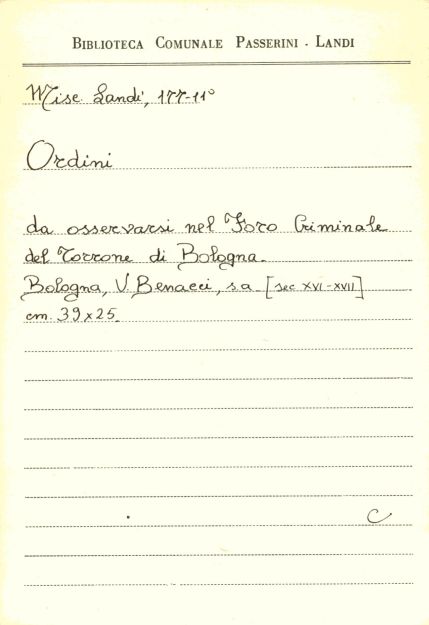 BIBLIOTECA COMUNALE PASSERINI - LANDI
Misc. Landi, 177-11°
Ordini
da osservarsi nel Foro Criminale
del Torrone di Bologna.
Bologna, V. Benacci, s.a. [sec XVI-XVII]
cm. 39x25.
C